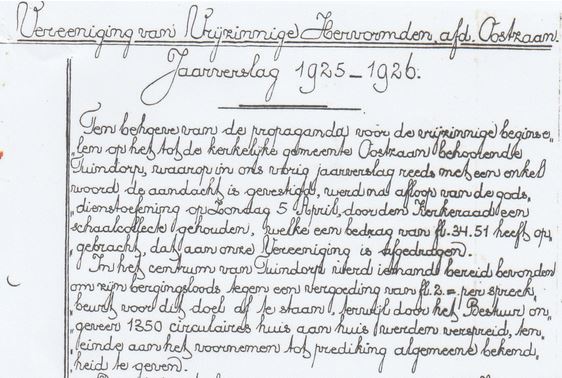 Vereeniging van Vrijzinnige Hervormden, afd. Oostzaan.
Jaarverslag 1925-1926.
Ten behoeve van de propaganda voor de vrijzinnige beginse„
„len op het tot de kerkelijke gemeente Oostzaan behoorende
Tuindorp, waarop in ons vorig jaarverslag reeds met een enkel
woord de aandacht is gevestigd, werd na afloop van de gods„
„dienstoefening op Zondag 5 April, door den Kerkeraad een
schaalcollecte gehouden, welke een bedrag van fl. 34.51 heeft op„
„gebracht, dat aan onze Vereeniging is afgedragen.
In het centrum van Tuindorp werd iemand bereid bevonden
om zijn bergingsloods tegen een vergoeding van fl. 2.= per spreek„
„beurt voor dit doel af te staan, terwijl door het Bestuur on„
„geveer 1350 circulaires huis aan huis werden verspreid, ten„
„einde aan het voornemen tot prediking algemeene bekend„
„heid te geven.